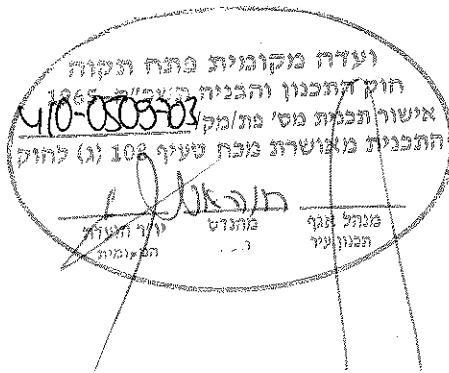 ועדה מקומית פתח תקוה
חוק התכנון והבניה תשכ"ה 1965
אישור תכנית מס' פת/מק/ 410-0509703
התכנית מאושרת מכח סעיף 108 (ג) לחוק
מנהל אגף מהנדס יו"ר הועדה
תכנון עיר המקומית